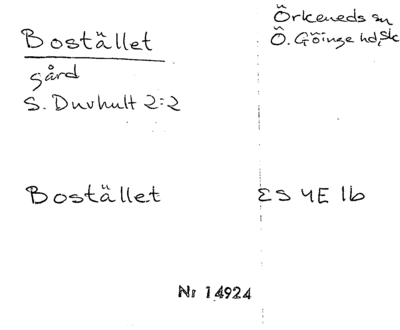 Bostället
gård
S. Duvhult 2:2
Örkeneds sn
Ö. Göinge hd, Sk
Bostället
ES 4E 1b
Nr 14924